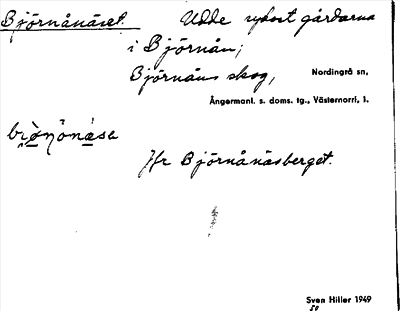 Björnånäset. Udde sydost gårdarna
i Björnån;
Björnåns skog, Nordingrå sn,
Ångermanl. s. doms. tg., Västernorrl. l.
Jfr Björnånäsberget.
Sven Hiller 1949
50